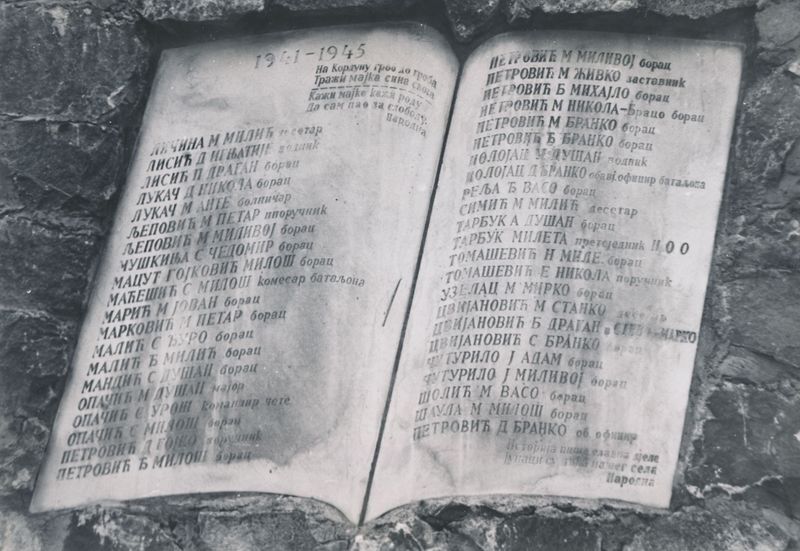 1941-1945
На Кордуну гроб до гроба
Тражи мајка сина свога
Кажи мајке кажи роду
Да сам пао за слободу.
Народна
ЛИЧИНА М МИЛИЋ десетар
ЛИСИЋ Д ИГЊАТИЈЕ водник
ЛИСИЋ П ДРАГАН борац
ЛУКАЧ Д НИКОЛА борац
ЛУКАЧ М АНТЕ болничар
ЉЕПОВИЋ М ПЕТАР ппоручник
ЉЕПОВИЋ М МИЛИВОЈ борац
ЧУШКИЊА С ЧЕДОМИР борац
МАЦУТ ГОЈКОВИЋ МИЛОШ борац
МАЋЕШИЋ С МИЛОШ комесар батаљона
МАРИЋ М ЈОВАН борац
МАРКОВИЋ М ПЕТАР борац
МАЛИЋ С ЂУРО борац
МАЛИЋ Ђ МИЛИЋ борац
МАНДИЋ С ДУШАН борац
ОПАЧИЋ М ДУШАН мајор
ОПАЧИЋ С УРОШ командир чете
ОПАЧИЋ С МИЛОШ борац
ПЕТРОВИЋ Д ГОЈКО поручник
ПЕТРОВИЋ Ђ МИЛОШ борац
ПЕТРОВИЋ М МИЛИВОЈ борац
ПЕТРОВИЋ М ЖИВКО заставник
ПЕТРОВИЋ Б МИХАЈЛО борац
ПЕТРОВИЋ М НИКОЛА-Брацо борац
ПЕТРОВИЋ М БРАНКО борац
ПЕТРОВИЋ Ђ БРАНКО борац
ПОЛОЈАЦ М ДУШАН водник
ПОЛОЈАЦ Д БРАНКО обавј.официр батаљона
РЕЉА Ђ ВАСО борац
СИМИЋ М МИЛИЋ десетар
ТАРБУК А ДУШАН борац
ТАРБУК МИЛЕТА претсједник Н О О
ТОМАШЕВИЋ Н МИЛЕ борац
ТОМАШЕВИЋ Е НИКОЛА поручник
УЗЕЛАЦ М МИРКО борац
ЦВИЈАНОВИЋ М СТАНКО десетар
ЦВИЈАНОВИЋ Б ДРАГАН МАРКО
ЦВИЈАНОВИЋ С БРАНКО борац
ЧУТУРИЛО Ј АДАМ борац
ЧУТУРИЛО Ј МИЛИВОЈ борац
ШОЛИЋ М ВАСО борац
ШАУЛА М МИЛОШ борац
ПЕТРОВИЋ Д БРАНКО об. официр
Историја пише славна дјеле
Јунаци су нашег села
Народна